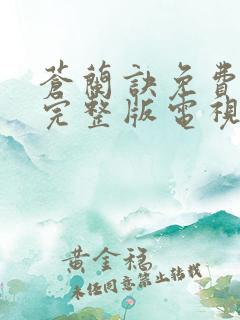 蒼蘭訣免費
完整版電視
黃金福
未經同意禁止轉載